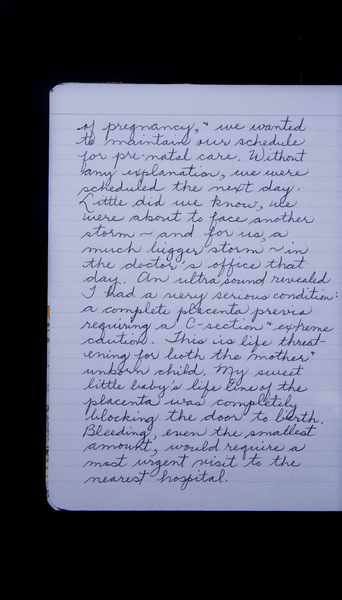 of pregnancy, " we wanted
to maintain our schedule
for pre-natal care. Without
any explanation, we were
scheduled the next day.
Little did we know, we
were about to face another
storm ~ and for us, a
much bigger storm ~ in
the doctor's office that
day. An ultrasound revealed
I had a very serious condition:
a complete placenta previa
requiring a C-section " extreme
caution. This is life threat-
ening for both the mother "
unborn child. My sweet
little baby's life line of the
placenta was completely
blocking the door to birth.
Bleeding, even the smallest
amount, would require a
most urgent visit to the
nearest hospital.